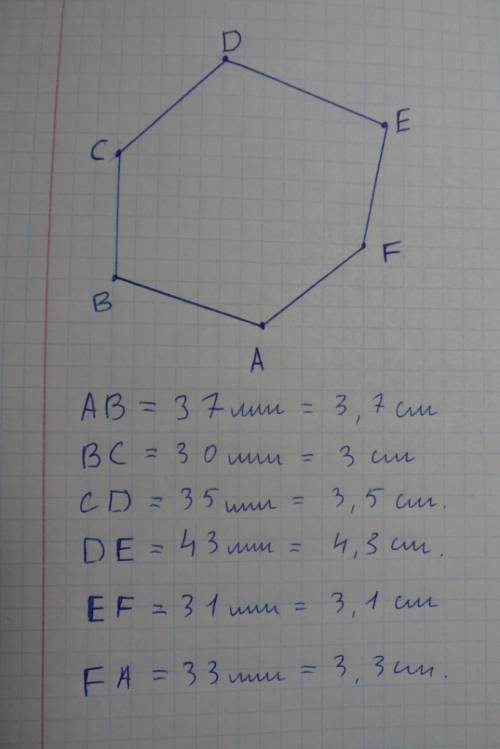 D
E
C
F
B
A
AB = 37 мм = 3,7 см
BC = 30 мм = 3 см
CD = 35 мм = 3,5 см.
DE = 43 мм = 4,3 см.
EF = 31 мм = 3,1 см
FA = 33 мм = 3,3 см.